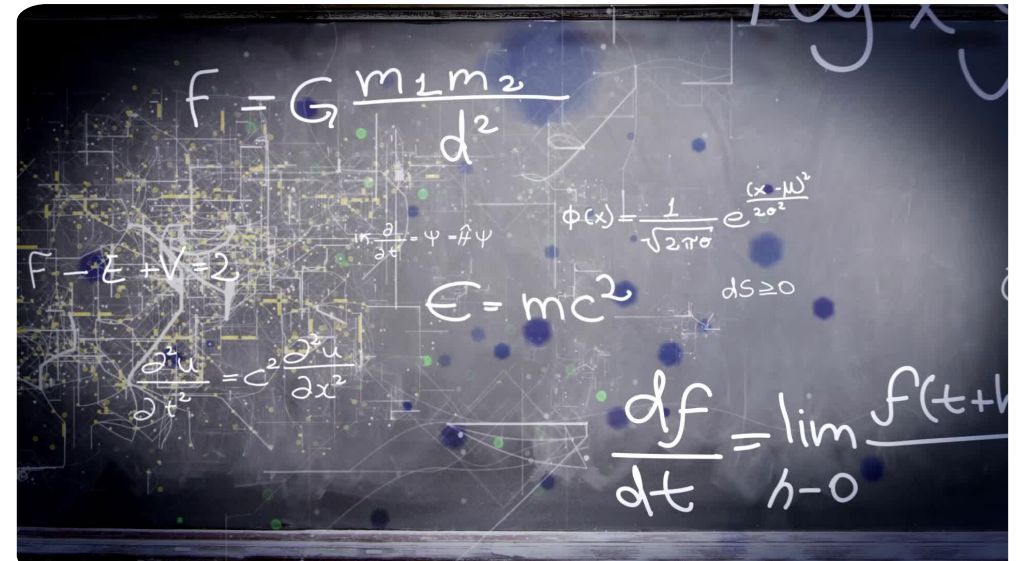 F = G m1m2 / d²
ϕ(x) = 1 / √2πσ e (x-μ)² / 2σ²
∂ / ∂t = Ψ = Ĥ Ψ
F - E + V = 2
E = mc²
dS ≥ 0
∂²u / ∂t² = c² ∂²u / ∂x²
df / dt = lim h-0 f(t+h